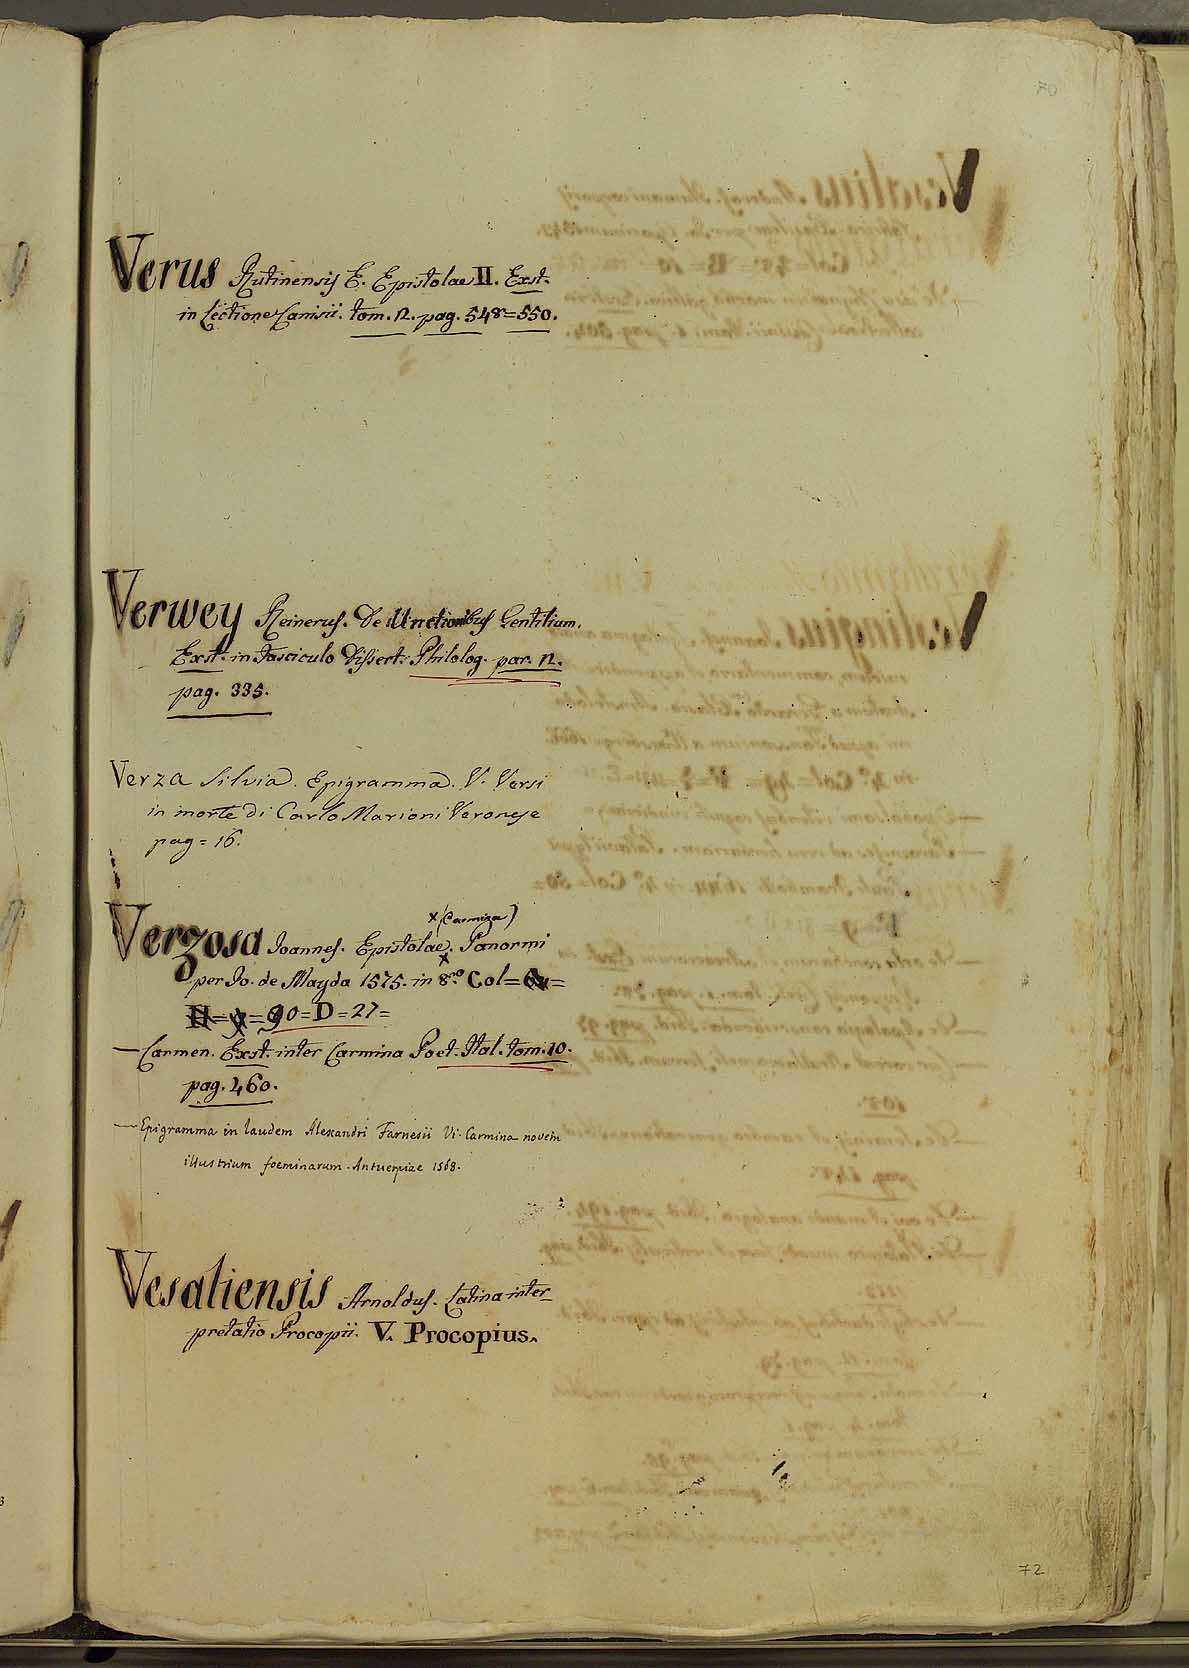 70
Verus Rutinensis E. Epistolae II. Exst.
in Lectione Canisii. tom. 2. pag. 548=550.
Verwey Reinerus. De Unctionibus Gentilium.
Exst. in Fasciculo Dissert. Philolog. par. 2.
pag. 335.
Verza Silvia. Epigramma. V. Versi
in morte di Carlo Marioni Veronese
pag = 16.
x (Carmina)
Verzosa Joannes. Epistolae. Panormi
x
per Jo. de Mayda 1575. in 8.º Col=
90=D=27=
— Carmen. Exst. inter Carmina Poet. Ital. tom. 10.
pag. 460.
— Epigramma in laudem Alexandri Farnesii Vi. Carmina novem
illustrium foeminarum. Antuerpiae 1568.
Vesaliensis Arnoldus. Latina inter_
pretatio Procopii. V. Procopius.
72